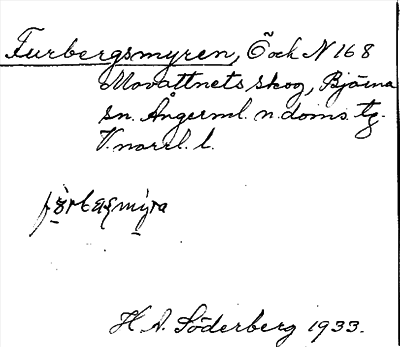 Furbergsmyren, Ö och N 168
Movattnets skog, Björna
sn. Ångerml. n. doms. tg.
V.norrl. l.
H. A. Söderberg 1933.